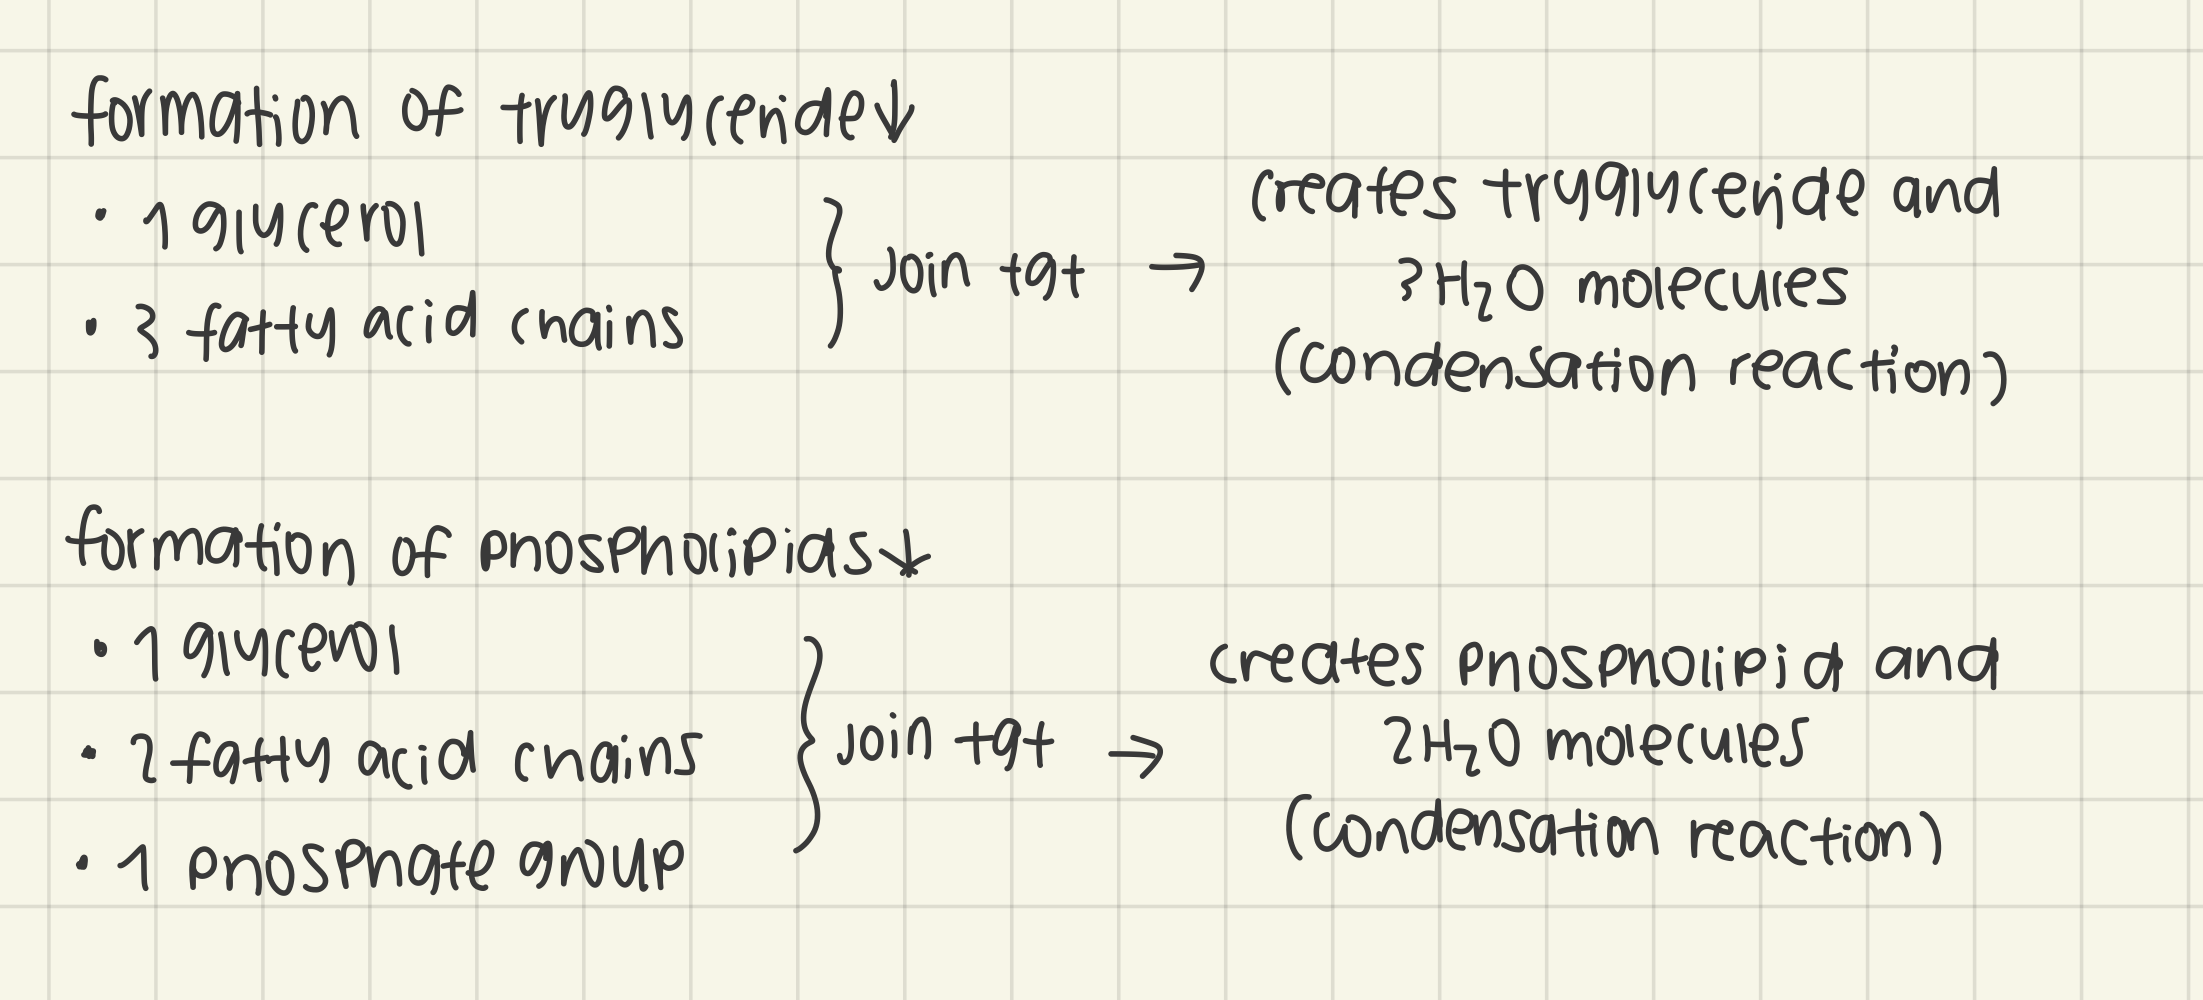 formation of tryglyceride ↓
• 1 glycerol
• 3 fatty acid chains
} join tgt →
creates tryglyceride and
3H₂O molecules
(condensation reaction)
formation of phospholipids ↓
• 1 glycerol
• 2 fatty acid chains
• 1 phosphate group
} join tgt →
creates phospholipid and
2H₂O molecules
(condensation reaction)